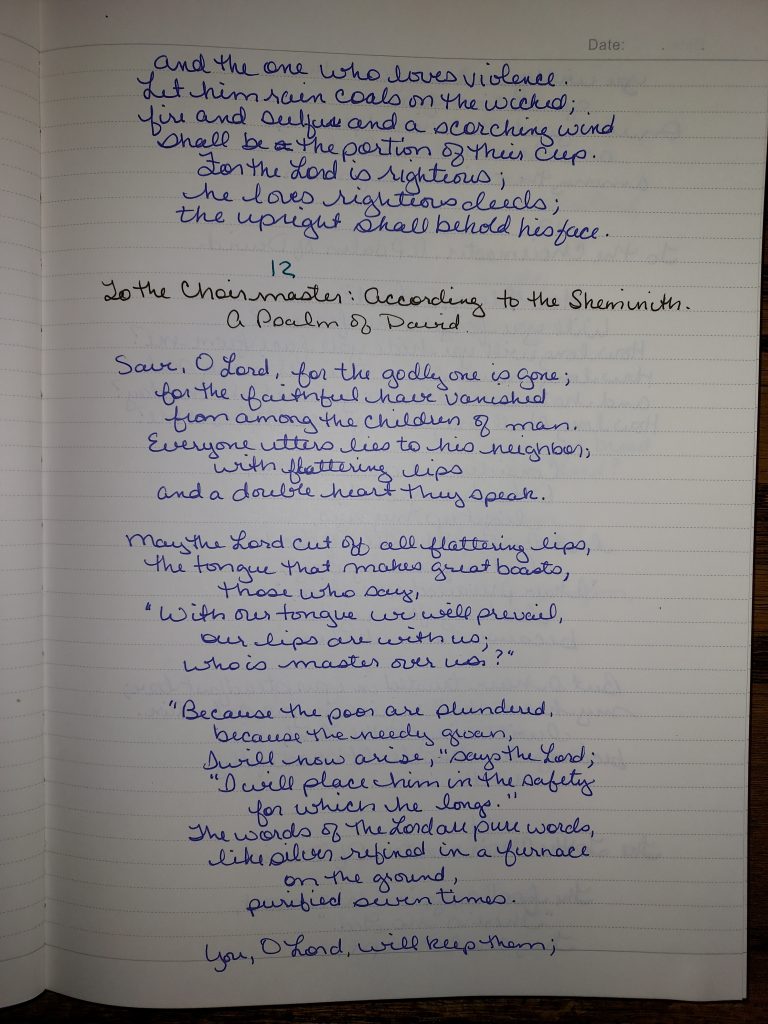 Date:
and the one who loves violence.
Let him rain coals on the wicked;
fire and sulfur and a scorching wind
shall be the portion of their cup.
For the Lord is righteous;
he loves righteous deeds;
the upright shall behold his face.
12
To the Choirmaster: According to the Sheminith.
A Psalm of David.
Save, O Lord, for the godly one is gone;
for the faithful have vanished
from among the children of man.
Everyone utters lies to his neighbor;
with flattering lips
and a double heart they speak.
May the Lord cut off all flattering lips,
the tongue that makes great boasts,
those who say,
"With our tongue we will prevail,
our lips are with us;
who is master over us?"
"Because the poor are plundered,
because the needy groan,
I will now arise," says the Lord;
"I will place him in the safety
for which he longs."
The words of the Lord are pure words,
like silver refined in a furnace
on the ground,
purified seven times.
You, O Lord, will keep them;